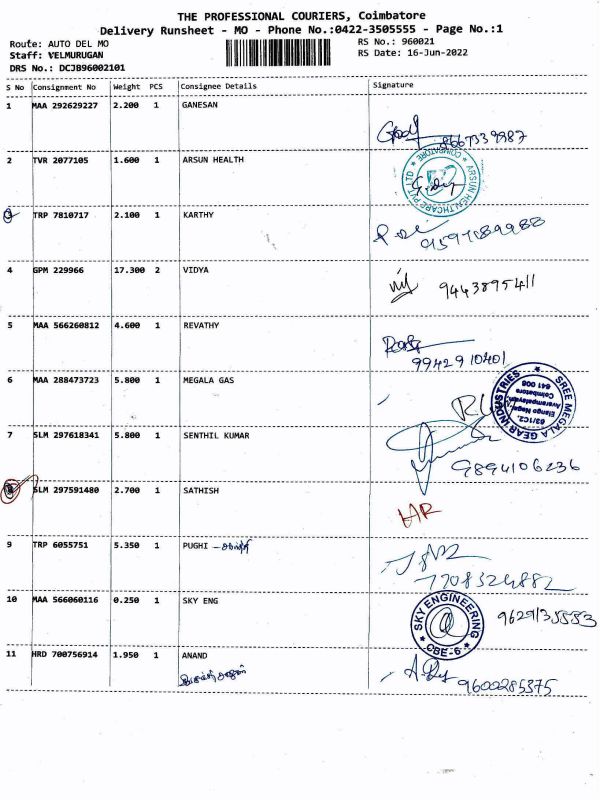 THE PROFESSIONAL COURIERS, Coimbatore
Delivery Runsheet - MO - Phone No.:0422-3505555 - Page No.:1
Route: AUTO DEL MO RS No.: 960021
Staff: VELMURUGAN RS Date: 16-Jun-2022
DRS No.: DCJB96002101
S No Consignment No Weight PCS Consignee Details Signature
1 MAA 292629227 2.200 1 GANESAN
8667339987
2 TVR 2077105 1.600 1 ARSUN HEALTH
ARSUN HEALTHCARE PVT LTD * COIMBATORE *
3 TRP 7810717 2.100 1 KARTHY
4 GPM 229966 17.300 2 VIDYA
9443895411
5 MAA 566260812 4.600 1 REVATHY
9942910401
6 MAA 288473723 5.800 1 MEGALA GAS
SREE MEGALA GEAR INDUSTRIES *
63/1C2,
Elango Nagar
Avarampalayam
Coimbatore
641 006
7 SLM 297618341 5.800 1 SENTHIL KUMAR
9894106236
SLM 297591480 2.700 1 SATHISH
HR
9 TRP 6055751 5.350 1 PUGHI
7708324882
10 MAA 566060116 0.250 1 SKY ENG
* SKY ENGINEERING * CBE-6
11 HRD 700756914 1.950 1 ANAND
9600285375